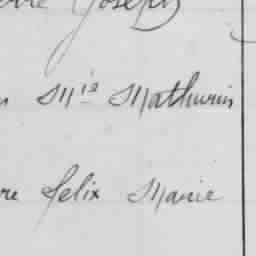 Joseph
Mie Mathurin
re Felix Marie